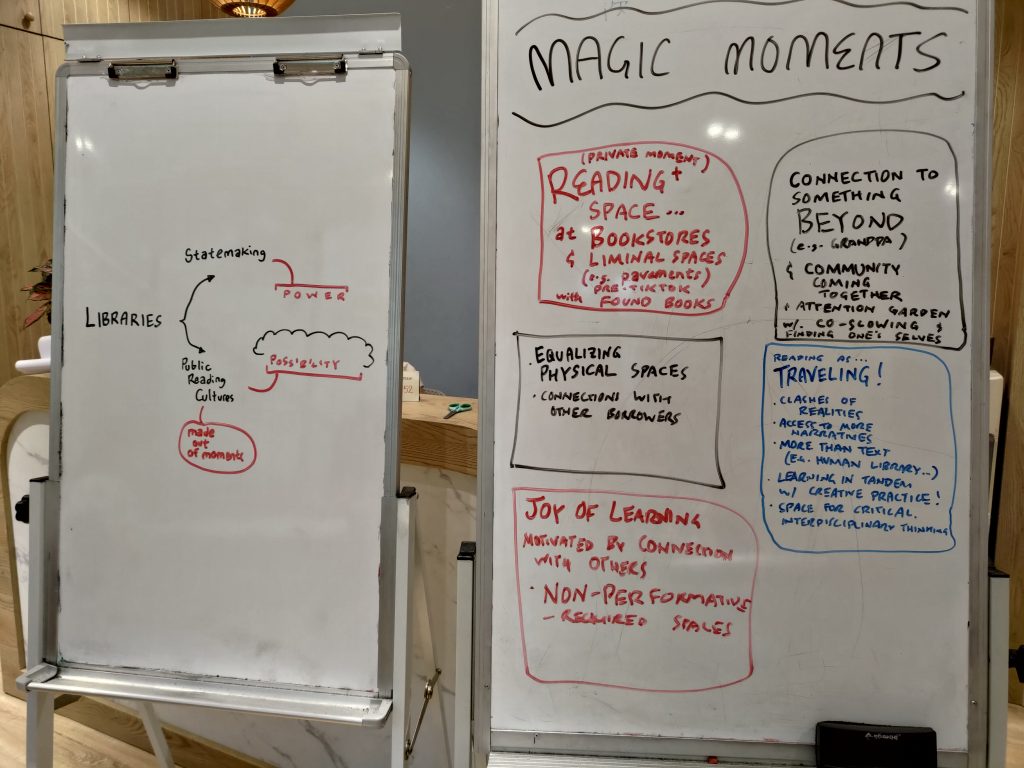 Statemaking
POWER
LIBRARIES
POSSIBILITY
Public
Reading
Cultures
made
out
of moments
52
MAGIC MOMENTS
(PRIVATE MOMENT)
READING +
SPACE...
at BOOKSTORES
& LIMINAL SPACES
(e.g. pavements)
PRE-TIKTOK
with FOUND BOOKS
CONNECTION TO
SOMETHING
BEYOND
(e.g. GRANDPA)
& COMMUNITY
COMING
TOGETHER
+ ATTENTION GARDEN
w/. CO-SLOWING &
FINDING ONE'S SELVES
· EQUALIZING
PHYSICAL SPACES
· CONNECTIONS WITH
OTHER BORROWERS
READING AS...
TRAVELING!
· CLASHES OF
REALITIES
· ACCESS TO MORE
NARRATIVES
· MORE THAN TEXT
(E.G. HUMAN LIBRARY...)
· LEARNING IN TANDEM
w/ CREATIVE PRACTICE!
· SPACE FOR CRITICAL.
INTERDISCIPLINARY THINKING
JOY OF LEARNING
MOTIVATED BY CONNECTION
WITH OTHERS
· NON-PERFORMATIVE
- REQUIRED SPACES